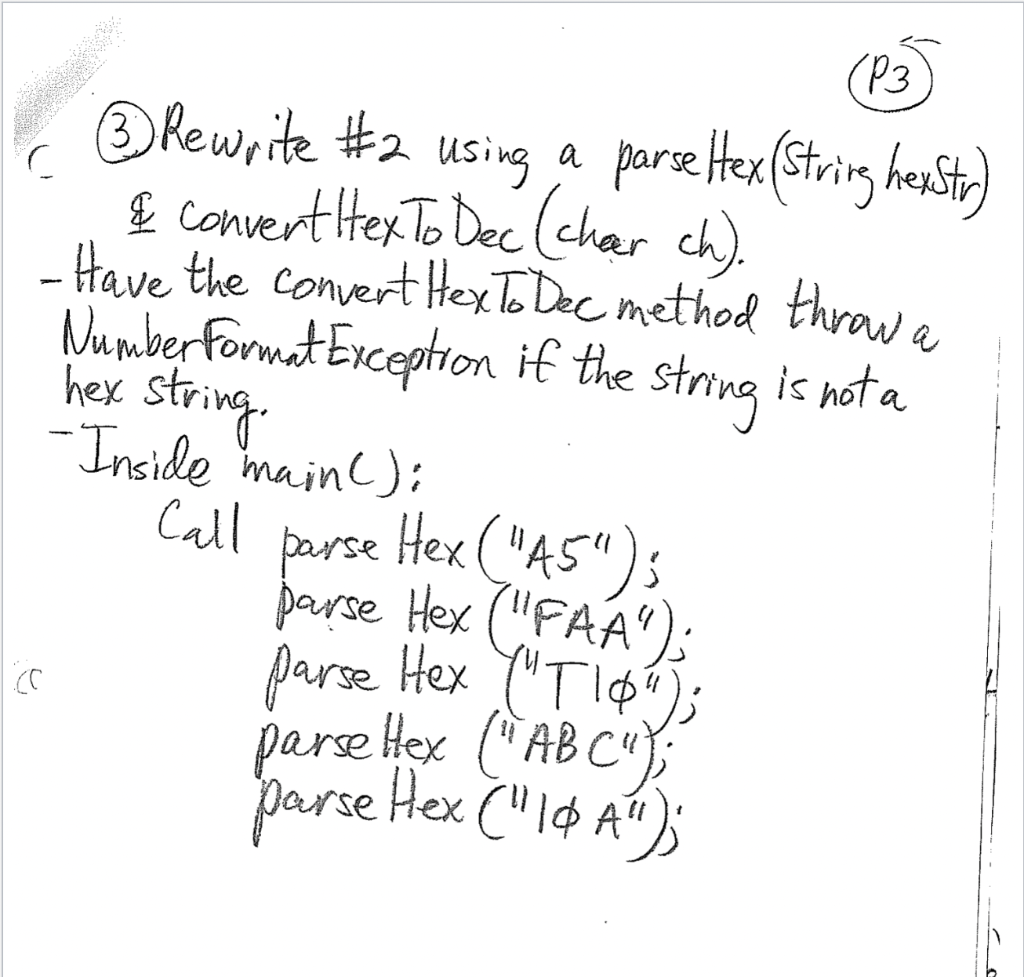 P3
③ Rewrite #2 using a parseHex(String hexStr)
& convertHexToDec(char ch).
- Have the convertHexToDec method throw a
NumberFormatException if the string is not a
hex string.
- Inside main():
Call parseHex("A5");
parseHex("FAA");
parseHex("T1ϕ");
parseHex("ABC");
parseHex("1ϕA");